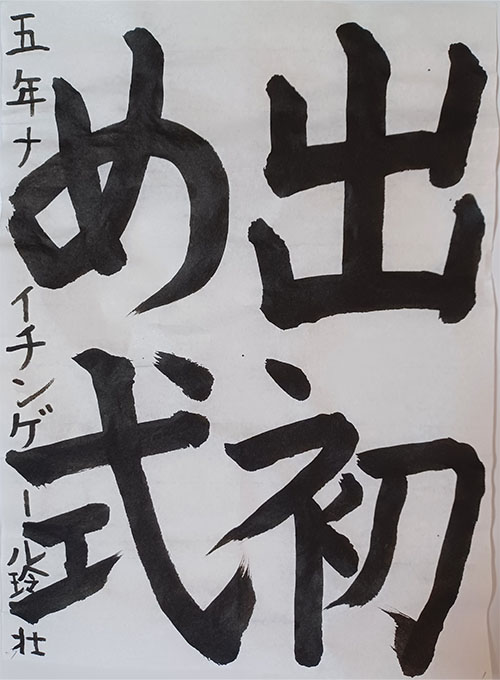 出初
め式
五年ナイチンゲール玲壮